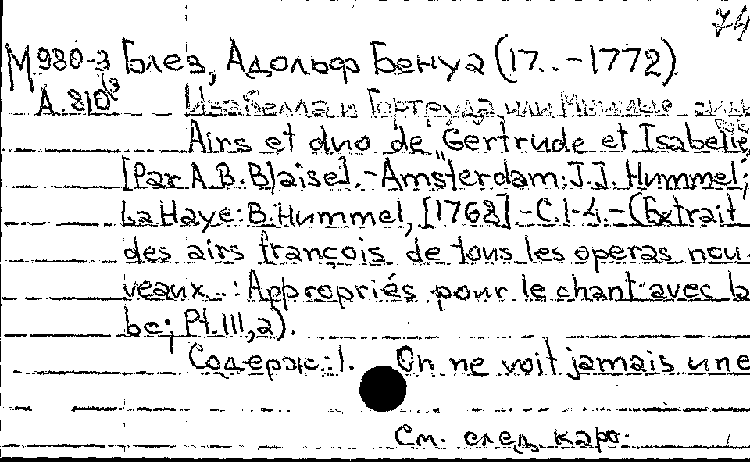 74
М980-3 Блез, Адольф Бенуа (17..-1772)
А.810(3 Изабелла и Гертруда или
Airs et duo de "Gertrude et Isabelle
[Par A.B.Blaise].-Amsterdam:J.J. Hummel;
La Haye:B.Hummel, [1768].-C.1-4.-(Extrait
des airs françois de tous les operas nou-
veaux..:Appropriés pour le chant avec la
bc; Pt.III,2).
Содерж.:1. On ne voit jamais une
См. след. карт.